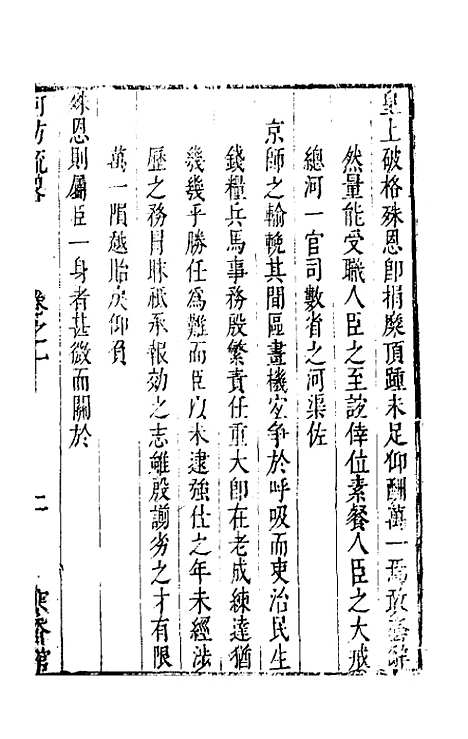 皇上破格殊恩即捐糜頂踵未足仰酬萬一焉敢
然量能受職人臣之至誼倖位素餐人臣之大戒
總河一官司數省之河渠佐
京師之輸輓其間區畫機宜争於呼吸而吏治民生
錢糧兵馬事務殷繁責任重大即在老成練達猶
幾幾乎勝任為難而臣以未逮強仕之年未經渉
歷之務冐昧祗承報効之志雖殷譾劣之才有限
萬一隕越貽戾仰負
殊恩則屬臣一身者甚微而關於
河防疏畧
卷之一
二
寒香館